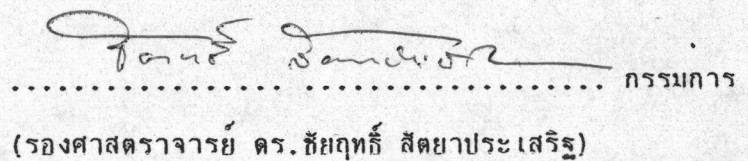 กรรมการ
(รองศาสตราจารย์ ดร.ชัยฤทธิ์ สัตยาประเสริฐ)